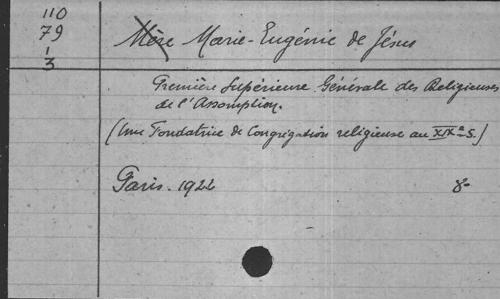 110
79
1
3
Mère Marie-Eugénie de Jésus
Première Supérieure Générale des Religieuses
de l'Assomption.
(Une Fondatrice de Congrégation religieuse au XIXe s.)
Paris. 1922 8-